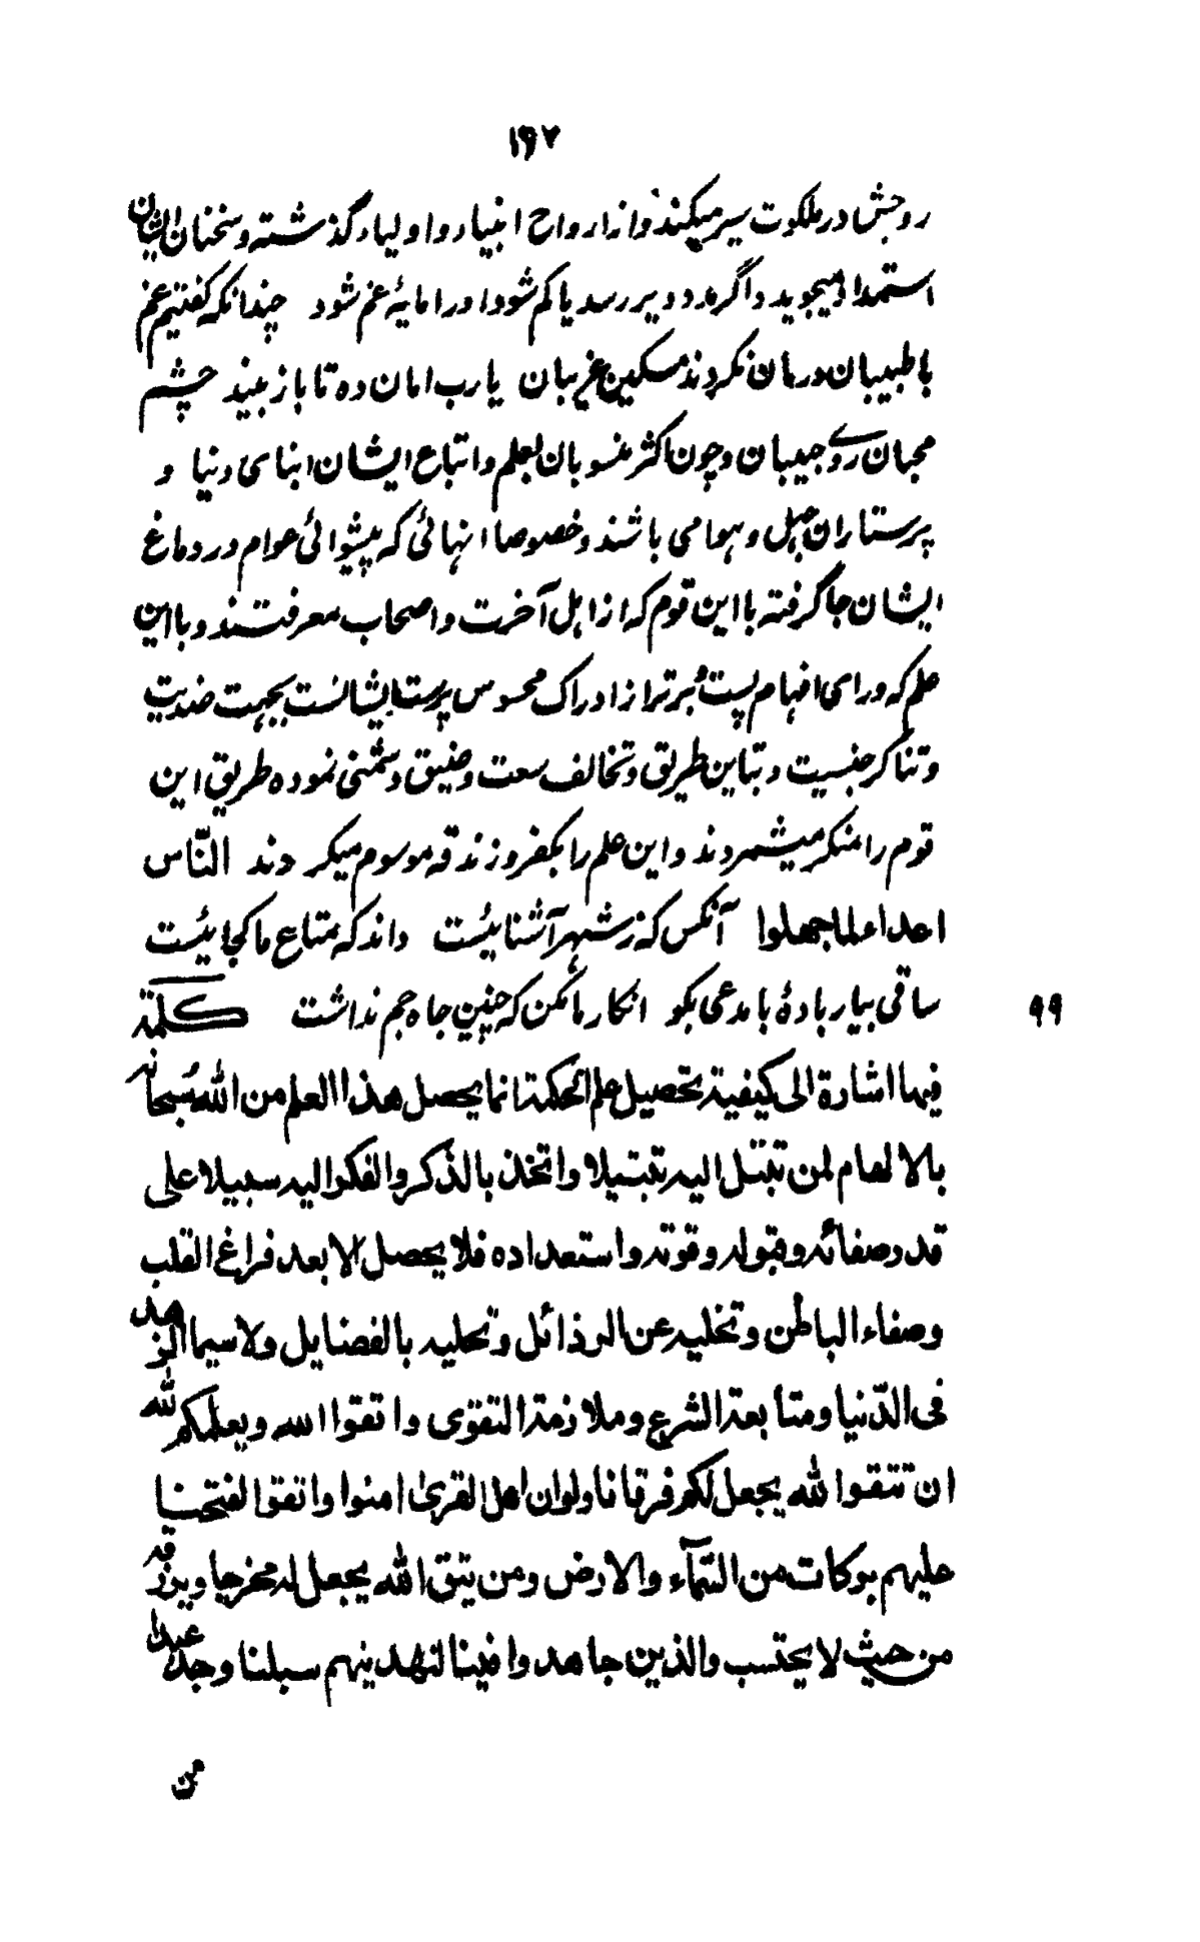 ۱۹۷
روحش در ملکوت سیر میکند و از ارواح انبیاء و اولیاء گذشته و سخنان ایشان
استمداد میجوید و اگر مدد دیر رسد یا کم شود او را مایۀ غم شود چندانکه گفتیم غم
با طبیبان درمان نکردند مسکین غریبان یا رب امان ده تا باز بیند چشم
محبان روے حبیبان و چون اکثر منسوبان بعلم و اتباع ایشان ابنای دنیا و
پرستاران جهل و هوا می باشند و خصوصا انهائی که پیشوائی عوام در دماغ
ایشان جا گرفته با این قوم که از اهل آخرت و اصحاب معرفتند و با این
علم که ورای افهام پست و برتر از ادراک محسوس پرست ایشانست بجهت ضدیت
و تناکر جنسیت و تباین طریق و تخالف سعت و ضیق دشمنی نموده طریق این
قوم را منکر میشمردند و این علم را بکفر و زندقه موسوم میکردند النّاس
اعداء لما جهلوا آنکس که ز شهر آشنائیست داند که متاع ما کجائیست
ساقی بیار بادۀ با مدعی بگو انکار ما مکن که چنین جام جم نداشت کلمة
۹۹
فیها اشارة الی کیفیة تحصیل علم الحکمة انما یحصل هذا العلم من الله سُبحانه
بالالهام لمن تبتّل الیه تبتیلا و اتخذ بالذکر والفکر الیه سبیلا علی
قدر صفائه و قبوله و قوته و استعداده فلا یحصل الا بعد فراغ القلب
و صفاء الباطن و تخلیه عن الرذائل و تحلیه بالفضایل ولا سیما الزهد
فی الدّنیا و متابعة الشرع و ملازمة التقوی واتقوا الله و یعلمکم الله
ان تتقوا الله یجعل لکم فرقانا ولو ان اهل القری امنوا واتقوا لفتحنا
علیهم برکات من السّمآء والارض و من یتق الله یجعل له مخرجا و یرزقه
من حیث لا یحتسب والذین جاهدوا فینا لنهدینهم سبلنا و جد عبدا
من